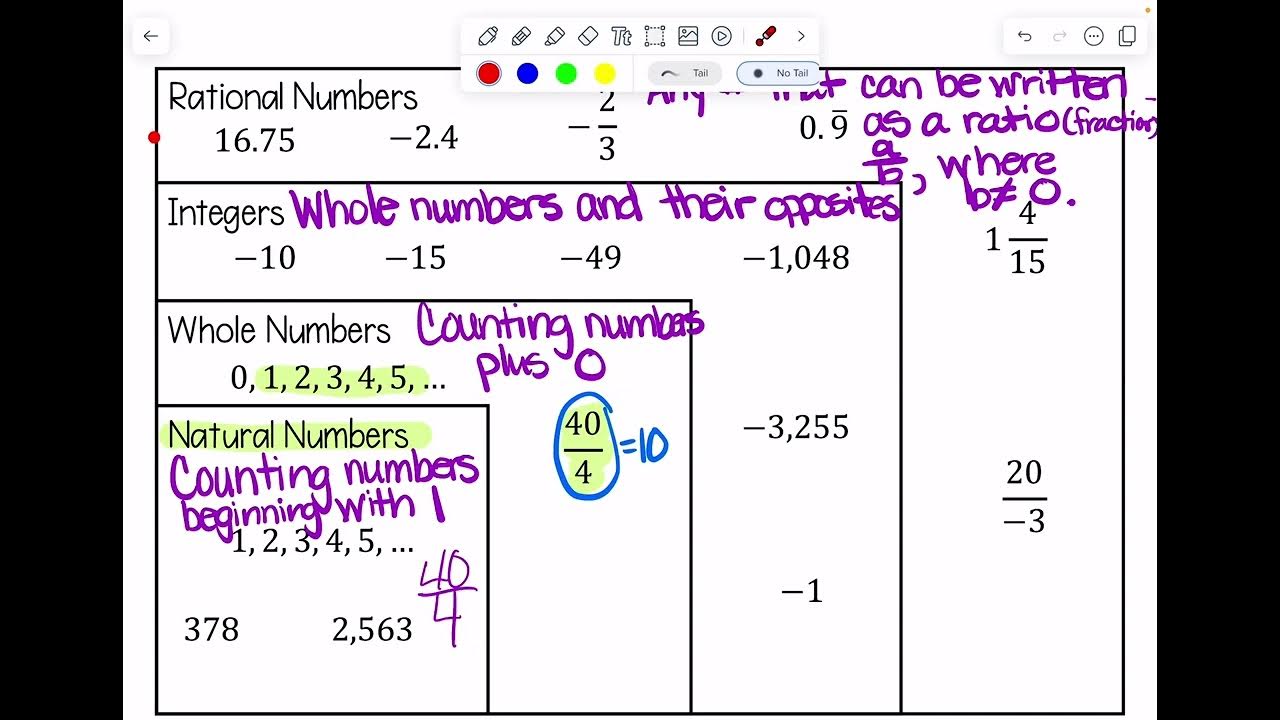 Tt
Tail
No Tail
Rational Numbers
Any # that can be written
as a ratio (fraction)
a/b, where
b≠0.
16.75
−2.4
−2/3
0.9̅
Integers Whole numbers and their opposites
−10
−15
−49
−1,048
1 4/15
Whole Numbers Counting numbers
plus 0
0, 1, 2, 3, 4, 5, ...
40/4 =10
−3,255
20/−3
−1
Natural Numbers
Counting numbers
beginning with 1
1, 2, 3, 4, 5, ...
40/4
378
2,563